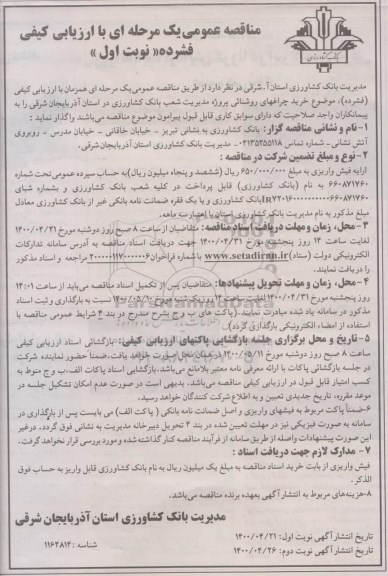 مناقصه عمومی یک مرحله ای با ارزیابی کیفی
فشرده« نوبت اول »
بانک کشاورزی
مدیریت بانک کشاورزی استان آ.شرقی در نظر دارد از طریق مناقصه عمومی یک مرحله ای همزمان با ارزیابی کیفی
(فشرده)، موضوع خرید چراغهای روشنائی پروژه مدیریت شعب بانک کشاورزی در استان آذربایجان شرقی را به
پیمانکاران واجد صلاحیت که دارای سوابق کاری قابل قبول پیرامون موضوع مناقصه می‌باشند واگذار نماید :
۱- نام و نشانی مناقصه گزار: بانک کشاورزی به نشانی تبریز - خیابان خاقانی - خیابان مدرس - روبروی
آتش نشانی- شماره تماس ۰۴۱۳۵۲۵۵۱۱۸- مدیریت بانک کشاورزی استان آذربایجان‌شرقی.
۲- نوع و مبلغ تضمین شرکت در مناقصه :
ارایه فیش واریزی به مبلغ ۶۵۰/۰۰۰/۰۰۰ ریال (ششصد و پنجاه میلیون ریال)به حساب سپرده عمومی تحت شماره
۶۶۰۸۷۱۷۶۰ به نام (بانک کشاورزی) قابل پرداخت در کلیه شعب بانک کشاورزی و بشماره شبای
بانک کشاورزی و یا یک فقره ضمانت نامه بانکی غیر از بانک کشاورزی معادل
مبلغ مذکور به نام مدیریت بانک کشاورزی استان با اعتبار سه ماهه.
۳- محل، زمان و مهلت دریافت اسناد مناقصه: متقاضیان از ساعت ۸ صبح روز دوشنبه مورخ ۱۴۰۰/۰۴/۲۱
لغایت ساعت ۱۴ روز پنجشنبه مورخ ۱۴۰۰/۰۴/۳۱ جهت دریافت اسناد مناقصه به آدرس سامانه تدارکات
الکترونیکی دولت (ستاد) www.setadiran.ir با شماره فراخوان مراجعه و اسناد مذکور
را دریافت نمایند.
۴- محل، زمان و مهلت تحویل پیشنهادها: متقاضیان پس از تکمیل اسناد مناقصه می‌باید از ساعت ۱۴:۰۱
روز پنجشنبه مورخ ۱۴۰۰/۰۴/۳۱ لغایت ساعت ۱۴ روز یکشنبه مورخ ۱۴۰۰/۰۵/۱۰ نسبت به بارگذاری و ثبت اسناد
مذکور در سامانه یاد شده مبادرت نمایند. (پاکت های ب و ج بشرح مندرج در بند ۴ شرایط عمومی مناقصه با
استفاده از امضاء الکترونیکی بارگذاری گردد).
۵- تاریخ و محل برگزاری جلسه بازگشایی پاکتهای ارزیابی کیفی: بازگشائی اسناد ارزیابی کیفی
ساعت ۸ صبح روز دوشنبه مورخ ۱۴۰۰/۰۵/۱۱ در همان محل صورت خواهد یافت، ضمناً حضور نماینده شرکت
در جلسه بازگشائی پاکات با ارائه معرفی نامه معتبر بلامانع می‌باشد. بازگشایی اسناد پاکات الف، ب وج منوط به
کسب امتیاز قابل قبول در ارزیابی کیفی مناقصه می‌باشد. بدیهی است در صورت عدم امکان تشکیل جلسه در
موعد مقرره، تاریخ جدیدی تعیین و به اطلاع شرکت کنندگان خواهد رسید.
۶-ضمناً پاکت مربوط به فیشهای واریزی و اصل ضمانت نامه بانکی ( پاکت الف) می بایست پس از بارگذاری در
سامانه به صورت فیزیکی نیز در مهلت تعیین شده در بند ۴ تحویل دبیرخانه مدیریت به نشانی فوق گردد. درغیر
این صورت پیشنهادات واصله از طریق سامانه از فرآیند مناقصه کنار گذاشته شده و مورد بررسی قرار نخواهد گرفت.
۷- مدارک لازم جهت دریافت اسناد :
فیش واریزی از بابت خرید اسناد مناقصه به مبلغ یک میلیون ریال به نام بانک کشاورزی قابل واریز به حساب فوق
الذکر.
۸-هزینه‌های مربوط به انتشار آگهی بعهده برنده مناقصه می‌باشد.
مدیریت بانک کشاورزی استان آذربایجان شرقی
تاریخ انتشار آگهی نوبت اول: ۱۴۰۰/۰۴/۲۱
شناسه : ۱۱۶۲۸۱۴
تاریخ انتشار آگهی نوبت دوم: ۱۴۰۰/۰۴/۲۶